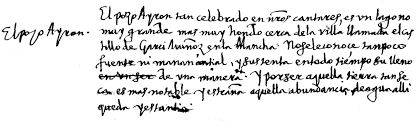 El pozo Ayron.
El pozo Ayron tan celebrado en nr̃os cantares, es vn lago no
muy grande mas muy hondo cerca de la villa llamada el cas
tillo de Garci Muñoz en la Mancha. No se le conoce tanpoco
fuente ni manancial, y sustenta en todo tiempo su lleno
de vna manera. Y por ser aquella tierra tan se
ca es mas notable y estraña aquella abundancia de agua alli
queda y estantia